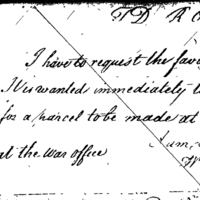 I D R O
I have to request the favo
It is wanted immediately t
for a parcel to be made at
I am,
at the War office